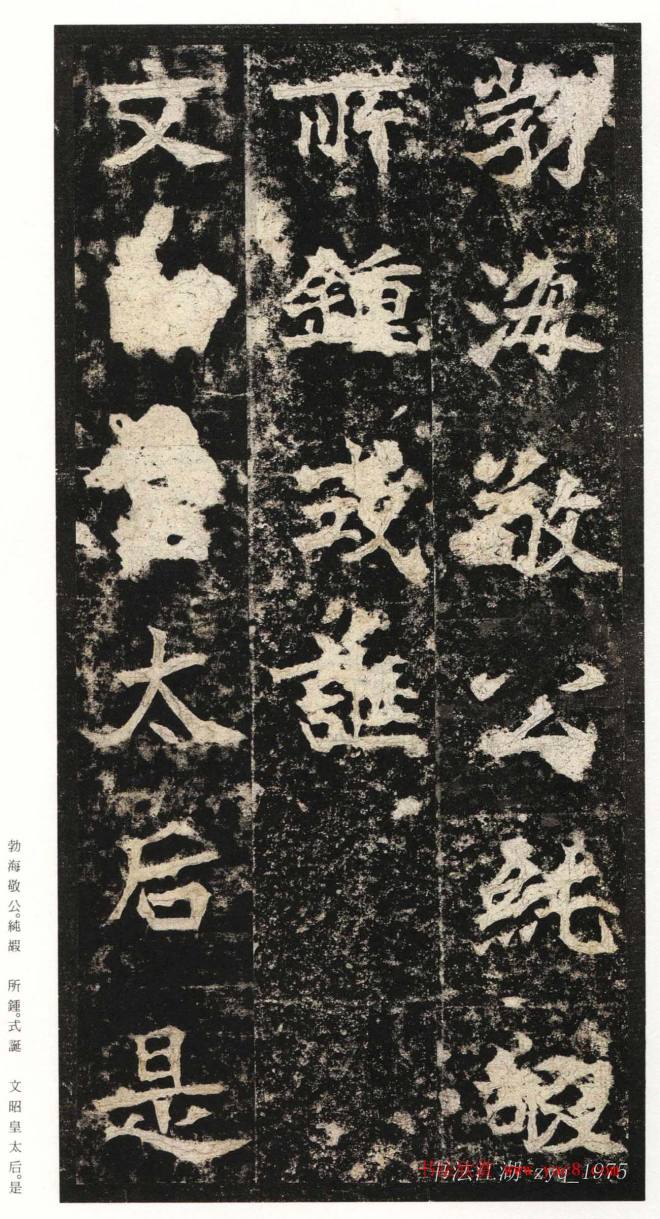 勃海敬公純嘏
所鍾式誕
文昭皇太后是
勃海敬公。純嘏　所鍾。式誕　文昭皇太后。是
书法江湖 zyq_1945
www.yac8.com